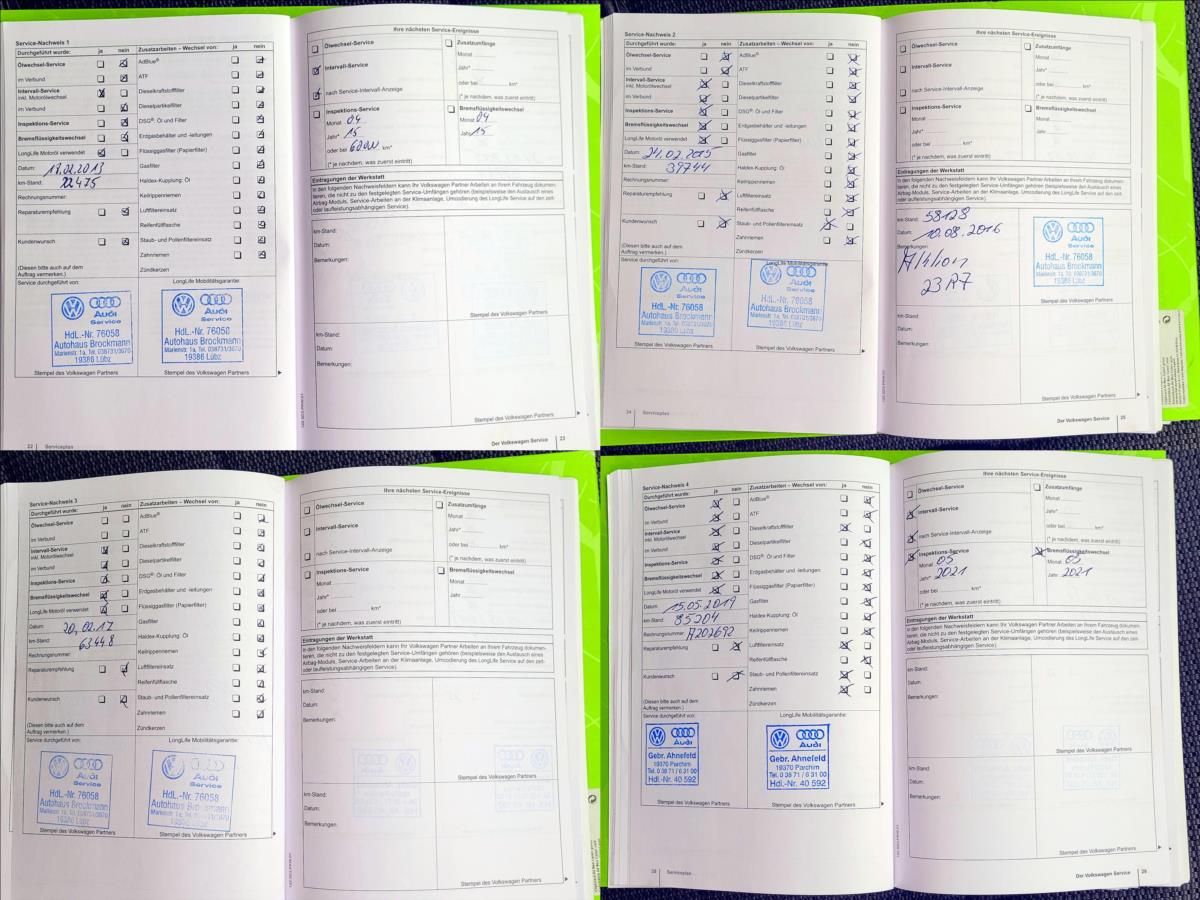 Service-Nachweis 1
Durchgeführt wurde: ja nein Zusatzarbeiten – Wechsel von: ja nein
Ölwechsel-Service AdBlue®
im Verbund ATF
Intervall-Service Dieselkraftstofffilter
inkl. Motorölwechsel
im Verbund Dieselpartikelfilter
Inspektions-Service DSG®: Öl und Filter
Bremsflüssigkeitswechsel Erdgasbehälter und -leitungen
LongLife Motoröl verwendet Flüssiggasfilter (Papierfilter)
Datum: Gasfilter
km-Stand: 22475 Haldex-Kupplung: Öl
Rechnungsnummer: Keilrippenriemen
Reparaturempfehlung Luftfiltereinsatz
Reifenfüllflasche
Kundenwunsch Staub- und Pollenfiltereinsatz
Zahnriemen
(Diesen bitte auch auf dem
Auftrag vermerken.) Zündkerzen
Service durchgeführt von: LongLife Mobilitätsgarantie:
Audi
Service
HdL.-Nr. 76058
Autohaus Brockmann
Marienstr. 1a, Tel. 038731/3670
19386 Lübz
Audi
Service
HdL.-Nr. 76058
Autohaus Brockmann
Marienstr. 1a, Tel. 038731/3670
19386 Lübz
Stempel des Volkswagen Partners Stempel des Volkswagen Partners
22 Serviceplan
Ihre nächsten Service-Ereignisse
Ölwechsel-Service Zusatzumfänge
Monat
Intervall-Service Jahr*
oder bei km*
nach Service-Intervall-Anzeige (* je nachdem, was zuerst eintritt)
Inspektions-Service Bremsflüssigkeitswechsel
Monat 04 Monat 04
Jahr* 15 Jahr 15
oder bei 60000 km*
(* je nachdem, was zuerst eintritt)
Eintragungen der Werkstatt
In den folgenden Nachweisfeldern kann Ihr Volkswagen Partner Arbeiten an Ihrem Fahrzeug dokumen-
tieren, die nicht zu den festgelegten Service-Umfängen gehören (beispielsweise den Austausch eines
Airbag-Moduls, Service-Arbeiten an der Klimaanlage, Umcodierung des LongLife Service auf den zeit-
oder laufleistungsabhängigen Service).
km-Stand:
Datum:
Bemerkungen:
Stempel des Volkswagen Partners
km-Stand:
Datum:
Bemerkungen:
Stempel des Volkswagen Partners
Der Volkswagen Service 23
Service-Nachweis 2
Durchgeführt wurde: ja nein Zusatzarbeiten – Wechsel von: ja nein
Ölwechsel-Service AdBlue®
im Verbund ATF
Intervall-Service Dieselkraftstofffilter
inkl. Motorölwechsel
im Verbund Dieselpartikelfilter
Inspektions-Service DSG®: Öl und Filter
Bremsflüssigkeitswechsel Erdgasbehälter und -leitungen
LongLife Motoröl verwendet Flüssiggasfilter (Papierfilter)
Datum: 24.02.2015 Gasfilter
km-Stand: 39744 Haldex-Kupplung: Öl
Rechnungsnummer: Keilrippenriemen
Reparaturempfehlung Luftfiltereinsatz
Reifenfüllflasche
Kundenwunsch Staub- und Pollenfiltereinsatz
Zahnriemen
(Diesen bitte auch auf dem
Auftrag vermerken.) Zündkerzen
Service durchgeführt von: LongLife Mobilitätsgarantie:
Audi
Service
HdL.-Nr. 76058
Autohaus Brockmann
Marienstr. 1a, Tel. 038731/3670
19386 Lübz
Audi
Service
HdL.-Nr. 76058
Autohaus Brockmann
Marienstr. 1a, Tel. 038731/3670
19386 Lübz
Stempel des Volkswagen Partners Stempel des Volkswagen Partners
24 Serviceplan
Ihre nächsten Service-Ereignisse
Ölwechsel-Service Zusatzumfänge
Monat
Intervall-Service Jahr*
oder bei km*
nach Service-Intervall-Anzeige (* je nachdem, was zuerst eintritt)
Inspektions-Service Bremsflüssigkeitswechsel
Monat Monat
Jahr* Jahr
oder bei km*
(* je nachdem, was zuerst eintritt)
Eintragungen der Werkstatt
In den folgenden Nachweisfeldern kann Ihr Volkswagen Partner Arbeiten an Ihrem Fahrzeug dokumen-
tieren, die nicht zu den festgelegten Service-Umfängen gehören (beispielsweise den Austausch eines
Airbag-Moduls, Service-Arbeiten an der Klimaanlage, Umcodierung des LongLife Service auf den zeit-
oder laufleistungsabhängigen Service).
km-Stand: 58128
Datum: 10.08.2016
Bemerkungen:
23R7
Audi
Service
HdL.-Nr. 76058
Autohaus Brockmann
Marienstr. 1a, Tel. 038731/3670
19386 Lübz
Stempel des Volkswagen Partners
km-Stand:
Datum:
Bemerkungen:
Stempel des Volkswagen Partners
Der Volkswagen Service 25
Service-Nachweis 3
Durchgeführt wurde: ja nein Zusatzarbeiten – Wechsel von: ja nein
Ölwechsel-Service AdBlue®
im Verbund ATF
Intervall-Service Dieselkraftstofffilter
inkl. Motorölwechsel
im Verbund Dieselpartikelfilter
Inspektions-Service DSG®: Öl und Filter
Bremsflüssigkeitswechsel Erdgasbehälter und -leitungen
LongLife Motoröl verwendet Flüssiggasfilter (Papierfilter)
Datum: 20.02.17 Gasfilter
km-Stand: 63448 Haldex-Kupplung: Öl
Rechnungsnummer: Keilrippenriemen
Reparaturempfehlung Luftfiltereinsatz
Reifenfüllflasche
Kundenwunsch Staub- und Pollenfiltereinsatz
Zahnriemen
(Diesen bitte auch auf dem
Auftrag vermerken.) Zündkerzen
Service durchgeführt von: LongLife Mobilitätsgarantie:
Audi
Service
HdL.-Nr. 76058
Autohaus Brockmann
Marienstr. 1a, Tel. 038731/3670
19386 Lübz
Service
HdL.-Nr. 76058
Autohaus Brockmann
Marienstr. 1a, Tel. 038731/3670
19386 Lübz
Stempel des Volkswagen Partners Stempel des Volkswagen Partners
Ihre nächsten Service-Ereignisse
Ölwechsel-Service Zusatzumfänge
Monat
Intervall-Service Jahr*
oder bei km*
nach Service-Intervall-Anzeige (* je nachdem, was zuerst eintritt)
Inspektions-Service Bremsflüssigkeitswechsel
Monat Monat
Jahr* Jahr
oder bei km*
(* je nachdem, was zuerst eintritt)
Eintragungen der Werkstatt
In den folgenden Nachweisfeldern kann Ihr Volkswagen Partner Arbeiten an Ihrem Fahrzeug dokumen-
tieren, die nicht zu den festgelegten Service-Umfängen gehören (beispielsweise den Austausch eines
Airbag-Moduls, Service-Arbeiten an der Klimaanlage, Umcodierung des LongLife Service auf den zeit-
oder laufleistungsabhängigen Service).
km-Stand:
Datum:
Bemerkungen:
Stempel des Volkswagen Partners
km-Stand:
Datum:
Bemerkungen:
Stempel des Volkswagen Partners
Service-Nachweis 4
Durchgeführt wurde: ja nein Zusatzarbeiten – Wechsel von: ja nein
Ölwechsel-Service AdBlue®
im Verbund ATF
Intervall-Service Dieselkraftstofffilter
inkl. Motorölwechsel
im Verbund Dieselpartikelfilter
Inspektions-Service DSG®: Öl und Filter
Bremsflüssigkeitswechsel Erdgasbehälter und -leitungen
LongLife Motoröl verwendet Flüssiggasfilter (Papierfilter)
Datum: 15.05.2019 Gasfilter
km-Stand: 85204 Haldex-Kupplung: Öl
Rechnungsnummer: A202692 Keilrippenriemen
Reparaturempfehlung Luftfiltereinsatz
Reifenfüllflasche
Kundenwunsch Staub- und Pollenfiltereinsatz
Zahnriemen
(Diesen bitte auch auf dem
Auftrag vermerken.) Zündkerzen
Service durchgeführt von: LongLife Mobilitätsgarantie:
Audi
Gebr. Ahnefeld
19370 Parchim
Tel. 0 38 71 / 6 31 00
Hdl.-Nr. 40 592
Audi
Gebr. Ahnefeld
19370 Parchim
Tel. 0 38 71 / 6 31 00
Hdl.-Nr. 40 592
Stempel des Volkswagen Partners Stempel des Volkswagen Partners
28 Serviceplan
Ihre nächsten Service-Ereignisse
Ölwechsel-Service Zusatzumfänge
Monat
Intervall-Service Jahr*
oder bei km*
nach Service-Intervall-Anzeige (* je nachdem, was zuerst eintritt)
Inspektions-Service Bremsflüssigkeitswechsel
Monat 05 Monat 05
Jahr* 2021 Jahr 2021
oder bei km*
(* je nachdem, was zuerst eintritt)
Eintragungen der Werkstatt
In den folgenden Nachweisfeldern kann Ihr Volkswagen Partner Arbeiten an Ihrem Fahrzeug dokumen-
tieren, die nicht zu den festgelegten Service-Umfängen gehören (beispielsweise den Austausch eines
Airbag-Moduls, Service-Arbeiten an der Klimaanlage, Umcodierung des LongLife Service auf den zeit-
oder laufleistungsabhängigen Service).
km-Stand:
Datum:
Bemerkungen:
Stempel des Volkswagen Partners
km-Stand:
Datum:
Bemerkungen:
Stempel des Volkswagen Partners
Der Volkswagen Service 29